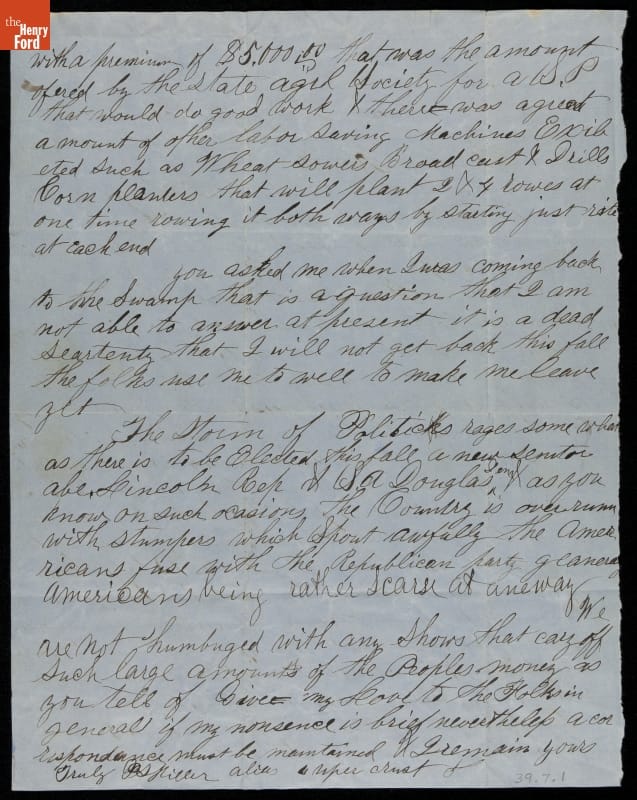 the
Henry
Ford
with a premium of $5.000.00 that was the amount
ofered by the State agrl Society for a S.P
that would do good work & there was agreat
a mount of other labor saving Machines Exib
eted such as Wheat sowers Broad cast & Drills
Corn planters that will plant 2 & 4 rowes at
one time rowing it both ways by starting just rite
at each end
you asked me when I was coming back
to the Swamp that is a question that I am
not able to answer at present it is a dead
seartenty that I will not get back this fall
the folks use me to well to make me leave
yet
The Storm of Politicks rages some what
as there is to be Elected this fall a new senator
abe Lincoln Rep & S A Douglas Dem & as you
know on such ocasions the Country is over runn
with stumpers which Spout awfully the Amer
ricans fuse with the Republican party generaly
Americans being rather scarse at aneway
We
are not humbuged with any Shows that cary off
such large amounts of the Peoples money as
you tell of Give my Love to the Folks in
general if my nonsence is brief nevertheless a cor
respondance must be maintained I remain yours
Truly Skiller alias uper crust
39.7.1